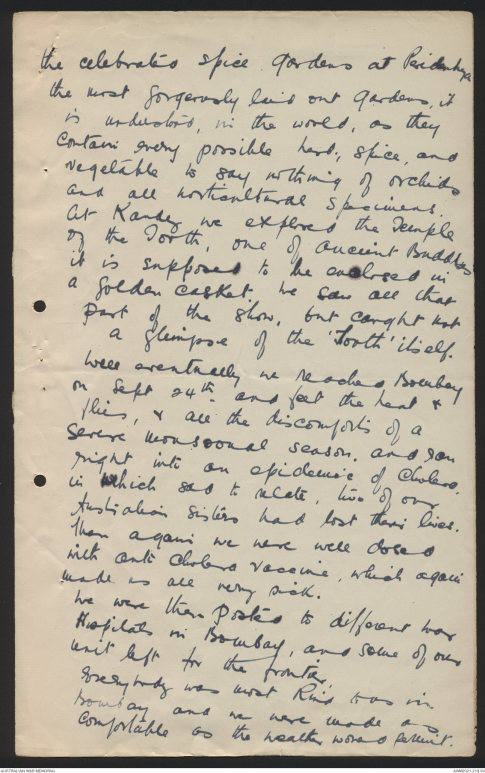 the celebrated spice gardens at Peridenhya
the most gorgeously laid out gardens, it
is undoubted, in the world, as they
contain every possible herb, spice, and
vegetable to say nothing of orchids
and all horticultural specimens.
At Kandy we explored the Temple
of the Tooth, one of ancient Buddhas
it is supposed to be enclosed in
a golden casket. We saw all that
part of the show, but caught not
a glimpse of the 'Tooth' itself.
Well eventually we reached Bombay
on Sept 24th and felt the heat &
flies, & all the discomforts of a
severe monsoonal season, and ran
right into an epidemic of Cholera,
in which sad to relate, two of our
Australian Sisters had lost their lives.
Then again we were well dosed
with anti Cholera vaccine, which again
made us all very sick.
We were then posted to different war
Hospitals in Bombay, and some of our
unit left for the frontier.
Everybody was most kind to us in
Bombay and we were made as
comfortable as the weather would permit.
AUSTRALIAN WAR MEMORIAL